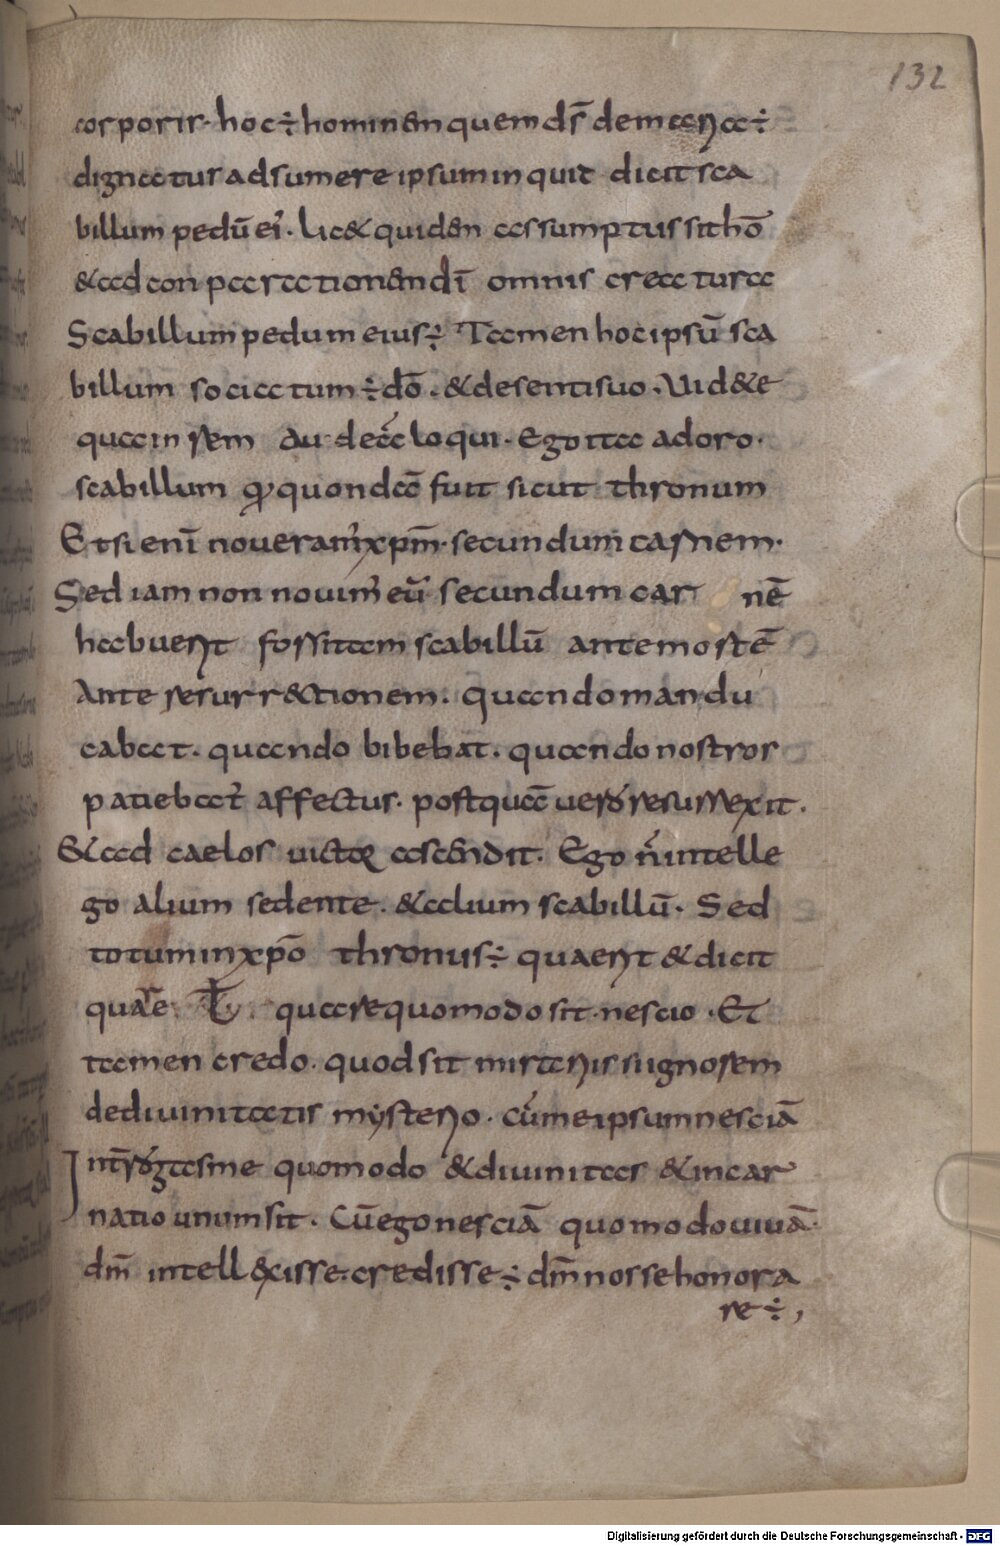 132
corporis. hoc ÷ hominem quem dс̄ demaria ÷
dignatur adsumere ipsum inquit dicit sca
billum pedū ei'. Lic& quidem assumptus sit hō
& ad conparationem dī omnis creatura
Scabillum pedum eius ÷ Tamen hoc ipsū sca
billum sociatum ÷ dō. & desenti suo. Vid&e
quae in sem au deā loqui. Ego ita adoro.
scabillum ꝙ quondā fuit sicut thronum
Et si enī noueram' xpm̄. secundum carnem.
Sed iam non nouim' eū secundum car nē
habuerit fossitam scabillū ante mortē
Ante resurr&ctionem. quando mandu
cabat. quando bibebat. quando nostros
patiebat' affectus. postquā uero resurrexit.
& ad caelos uictor ascendit. Ego ñ intelle
go alium sedente. & alium scabillū. Sed
totum in xpō thronus ÷ quaerit & dicit
quare ŧ quare quomodo sit. nescio. Et
tamen credo. quod sit miraris si ignorem
de diuinitatis mysterio. cū me ipsum nesciā
Introgas me quomodo & diuinitas & incar
natio unum sit. Cū ego nesciā quomodo uiuā.
dm̄ intell&xisse. credisse ÷ dm̄ nosse honora
re ÷,
Digitalisierung gefördert durch die Deutsche Forschungsgemeinschaft - DFG